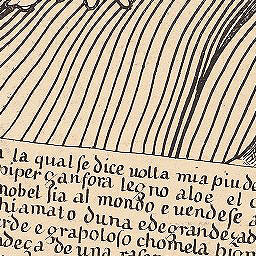 la qual se dice uolta mia piu de
piper ganfora legno aloe el
nobel sia al mondo e uendese a
hiamato duna e de grandega
rde e grapoloso chomela pign
dega de una